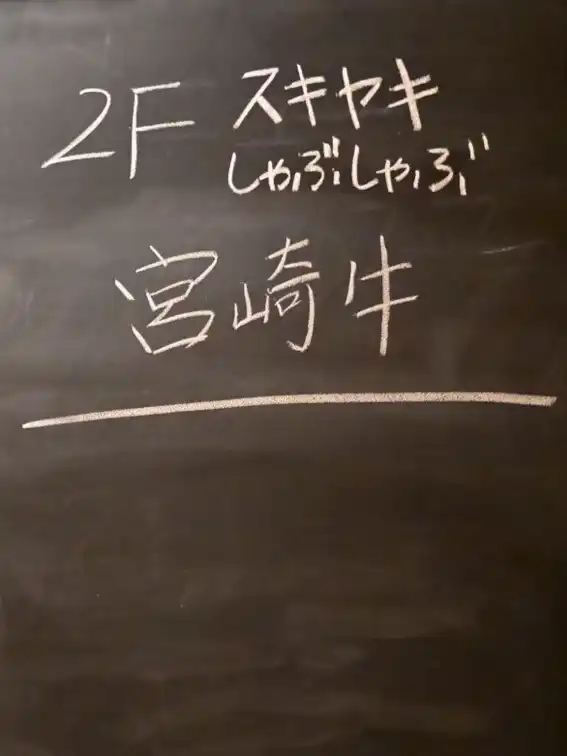 2F スキヤキ
しゃぶしゃぶ
宮崎牛